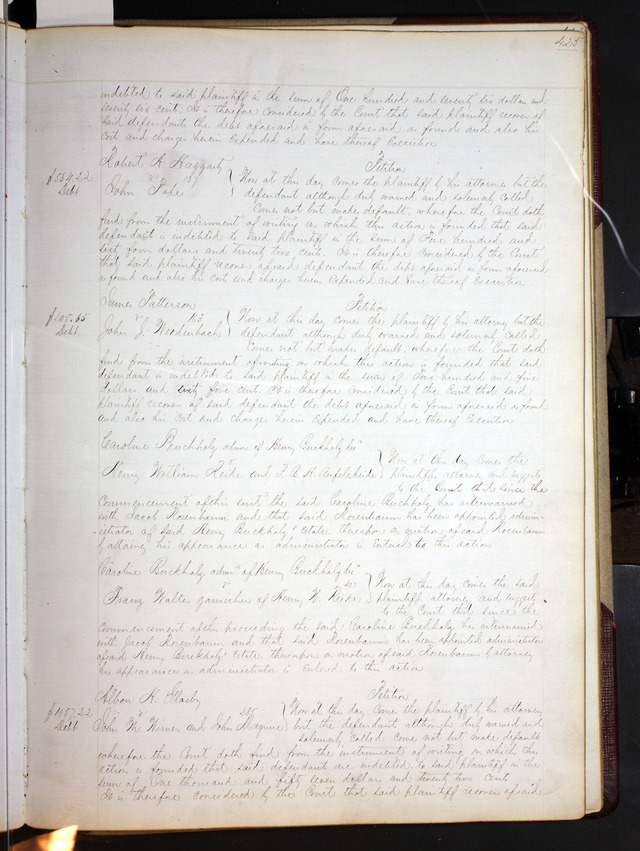 425
indebted to said plaintiff in the sum of One hundred and seventy six dollars and
seventy six cents. It is therefore considered by the Court that said plaintiff recover of
said defendants the debt aforesaid in form aforesaid as found and also his
cost and charges herein expended and have thereof Execution
Robert A. Haggarty Petition
$564.22
Debt
vs 157
John Pape
Now at this day comes the plaintiff by his attorney but the
defendant although duly warned and solemnly called
Comes not but makes default, wherefore the Court doth
find from the instrument of writing on which this action is founded that said
defendant is indebted to said plaintiff in the sum of Five hundred and
sixty four dollars and twenty two cents. It is therefore considered by the Court
that said plaintiff recover of said defendant the debt aforesaid in form aforesaid
as found and also his cost and charges herein Expended and have thereof Execution
James Patterson Petition
$105.65
Debt
vs 183
John J. Weidenbach
Now at this day comes the plaintiff by his attorney but the
defendant although duly warned and solemnly called
Comes not but makes default, wherefore the Court doth
find from the instrument of writing on which this action is founded that said
defendant is indebted to said plaintiff in the sum of One hundred and five
dollars and sixty five cents. It is therefore considered by the Court that said
plaintiff recover of said defendant the debt aforesaid in form aforesaid as found
and also his Cost and charges herein Expended and have thereof Execution
Caroline Buchholz admx of Henry Buchholz decd
vs
Henry William Reike and F. A. H.
Now at this day comes the
plaintiffs attorney and suggests
to the Court that since the
Commencement of this suit the said Caroline Buchholz has intermarried
with Jacob Rosenbaum and that said Rosenbaum has been appointed adminis-
-istrator of said Henry Buchholz estate thereupon on motion of said Rosenbaum
by attorney his appearance as administrator is Entered to this action
Caroline Buchholz admx of Henry Buchholz decd
vs
Franz Walter garnishee of Henry W. Reike
Now at this day comes the said
plaintiffs attorney and suggests
to the Court that since the
Commencement of this proceeding the said Caroline Buchholz has intermarried
with Jacob Rosenbaum and that said Rosenbaum has been appointed administrator
of said Henry Buchholz Estate thereupon on motion of said Rosenbaum by attorney
his appearance as administrator is Entered to this action
Alban H. Glasby Petition
$1057.22
Debt
vs
John M. Wimer and John Maguire
Now at this day comes the plaintiff by his attorney
but the defendant although duly warned and
solemnly called Come not but make default
wherefore the Court doth find from the instrument of writing on which this
action is founded that said defendants are indebted to said plaintiff in the
sum of One thousand and fifty seven dollars and twenty two cents
It is therefore considered by the Court that said plaintiff recover of said